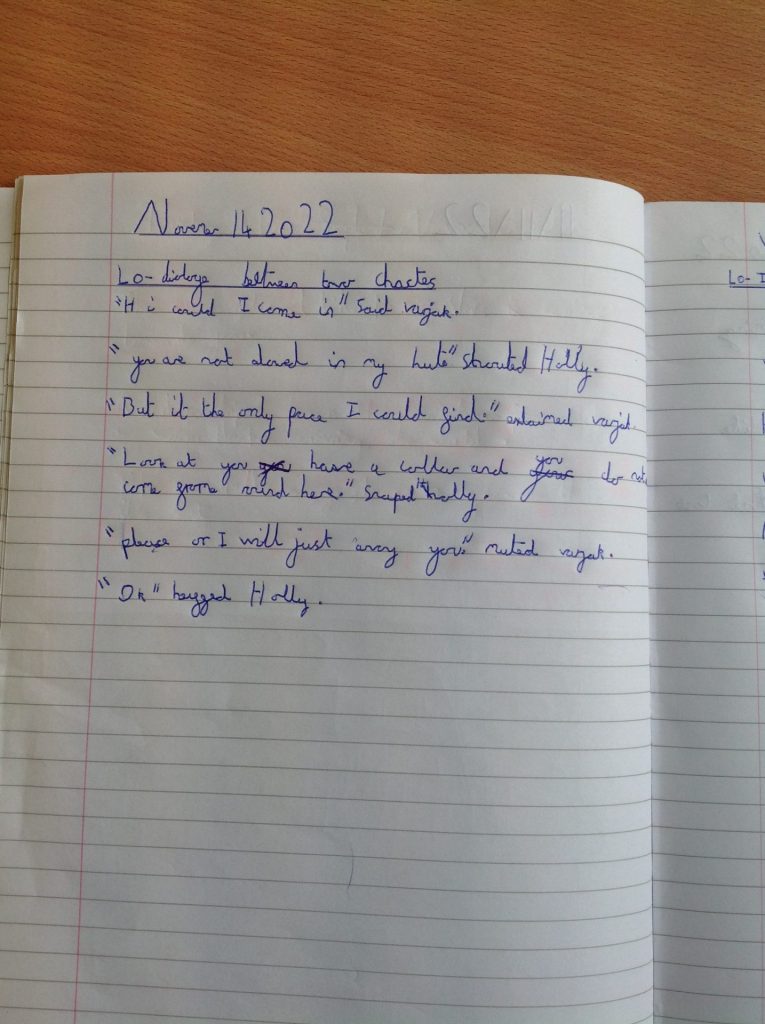 Novemer 14 2022
Lo- dialoge between two chactes
"Hi could I come in" Said varjak.
"you are not alowed in my hute" Shouted Holly.
"But it the only pace I could find." exlaimed varjak.
"Look at you have a collar and you do not
come frome round here." Snaped holly.
"please or I will just anoy you." muted varjak.
"Ok" hugged Holly.
Lo- I